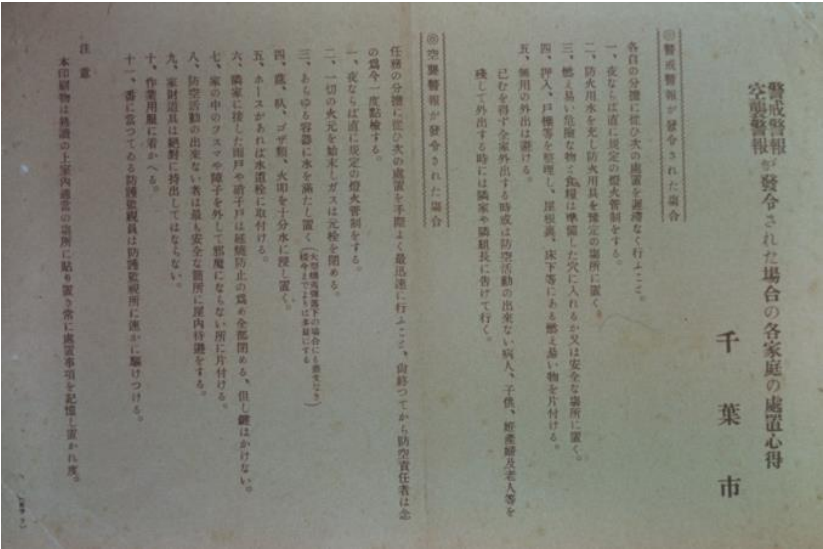 警戒警報
空襲警報 が發令された場合の各家庭の處置心得
千葉市
警戒警報が發令された場合
各自の分擔に從ひ次の處置を遲滯なく行ふこと。
一、夜ならば直に規定の燈火管制をする。
二、防火用水を充し防火用具を豫定の場所に置く。
三、燃え易い危險な物と食糧は準備した穴に入れるか又は安全な場所に置く。
四、押入、戸棚等を整理し、屋根裏、床下等にある燃え易い物を片付ける。
五、無用の外出は避ける。
已むを得ず全家外出する時或は防空活動の出來ない病人、子供、姙產婦及老人等を
殘して外出する時には隣家や隣組長に告げて行く。
空襲警報が發令された場合
任務の分擔に從ひ次の處置を手際よく最迅速に行ふこと、尙終つてから防空責任者は念
の爲今一度點檢する。
一、夜ならば直に規定の燈火管制をする。
二、一切の火元を始末しガスは元栓を閉める。
三、あらゆる容器に水を滿たし置く
四、蓆、叺、ゴザ類、火叩を十分水に浸し置く。
五、ホースがあれば水道栓に取付ける。
六、隣家に接した雨戸や硝子戸は延燒防止の爲め全部閉める、但し鍵はかけない。
七、家の中のフスマや障子を外して邪魔にならない所に片付ける。
八、防空活動の出來ない者は最も安全な箇所に屋内待避をする。
九、家財道具は絕對に持出してはならない。
十、作業用服に着かへる。
十一、番に當つてゐる防護監視員は防護監視所に速かに驅けつける。
注意
本印刷物は熟讀の上室内適當の場所に貼め置き常に處置事項を記憶し置かれ度。